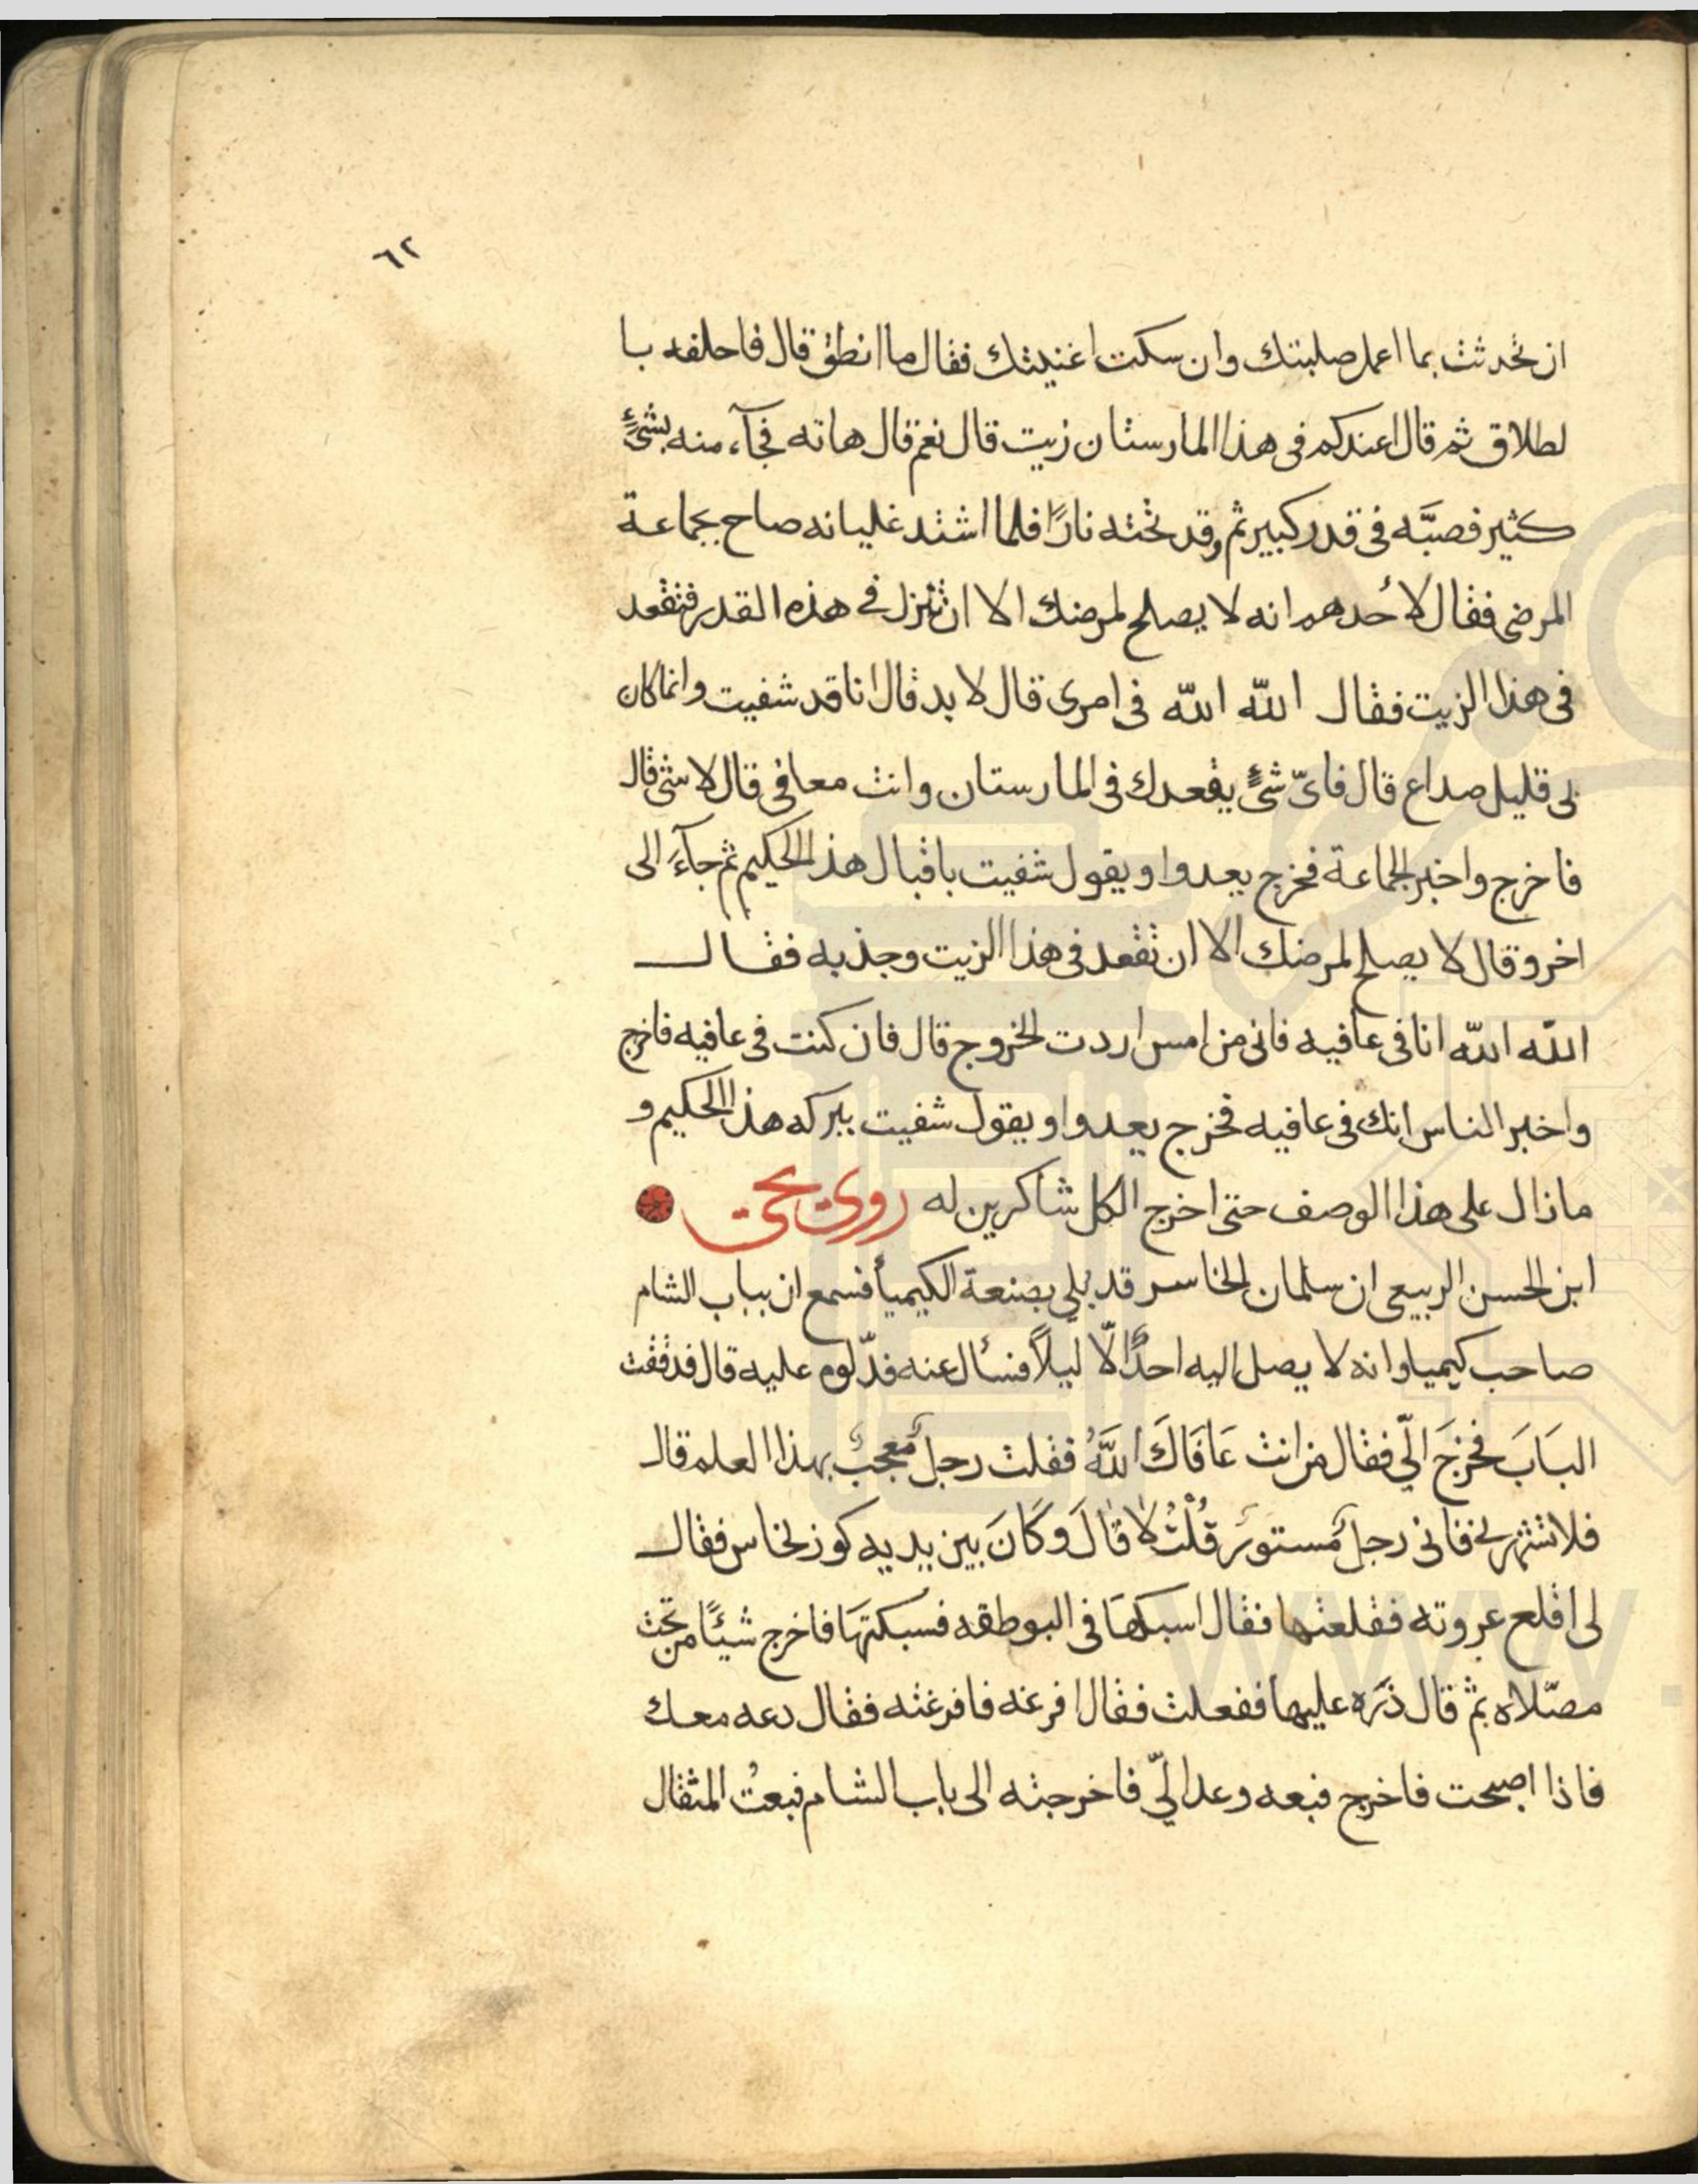 ٦٢
ان تحدثت بما اعمل صلبتك وان سكت اغنيتك فقال ما انطق قال فاحلفه با
لطلاق ثم قال اعندكم فى هذا المارستان زيت قال نعم قال هاته فجآء منه بشئٍ
كثير فصبَّه فى قدر كبير ثم وقد تحته نارًا فلما اشتد غليانه صاح بجماعة
المرضى فقال لأحدهم انه لا يصلح لمرضك الا ان تنزل فى هذه القدر فتقعد
فى هذا الزيت فقال الله الله فى امرى قال لا بد قال انا قد شفيت وانما كان
بى قليل صداع قال فاىّ شئٍ يقعدك فى المارستان وانت معافى قال لا شئ قال
فاخرج واخبر الجماعة فخرج يعدوا ويقول شفيت باقبال هذا الحكيم ثم جآءَ الى
اخر وقال لا يصلح لمرضك الا ان تقعد فى هذا الزيت وجذبه فقال
الله الله انا فى عافيه فانى من امس اردت الخروج قال فان كنت فى عافيه فاخرج
واخبر الناس انك فى عافيه فخرج يعدوا ويقول شفيت ببركه هذا الحكيم و
مازال على هذا الوصف حتى اخرج الكل شاكرين له روى يحيى
ابن الحسن الربيعى ان سلمان الخاسر قد بلي بصنعة الكيميأ فسمع ان بباب الشام
صاحب كيميا وانه لا يصل اليه احدًا الّا ليلاً فسأل عنه فدّلوه عليه قال فدققت
البَابَ فخرَجَ الىّ فقال من انت عَافَاكَ اللَّهُ فقلت رجلٌ معجبٌ بهذا العلم قال
فلا تشهرنى فانى رجلٌ مستورٌ قُلْتُ لا قالَ وكَانَ بين يديه كوز نحاس فقال
لى اقلع عروته فقلعتها فقال اسبكهَا فى البوطقه فسبكتهَا فاخرج شيئًا من تحت
مصّلاه ثم قال ذرَه عليها ففعلت فقال افرغه فافرغته فقال دعه معك
فاذا اصبحت فاخرج فبعه وعد الىّ فاخرجته الى باب الشام فبعتُ المثقال